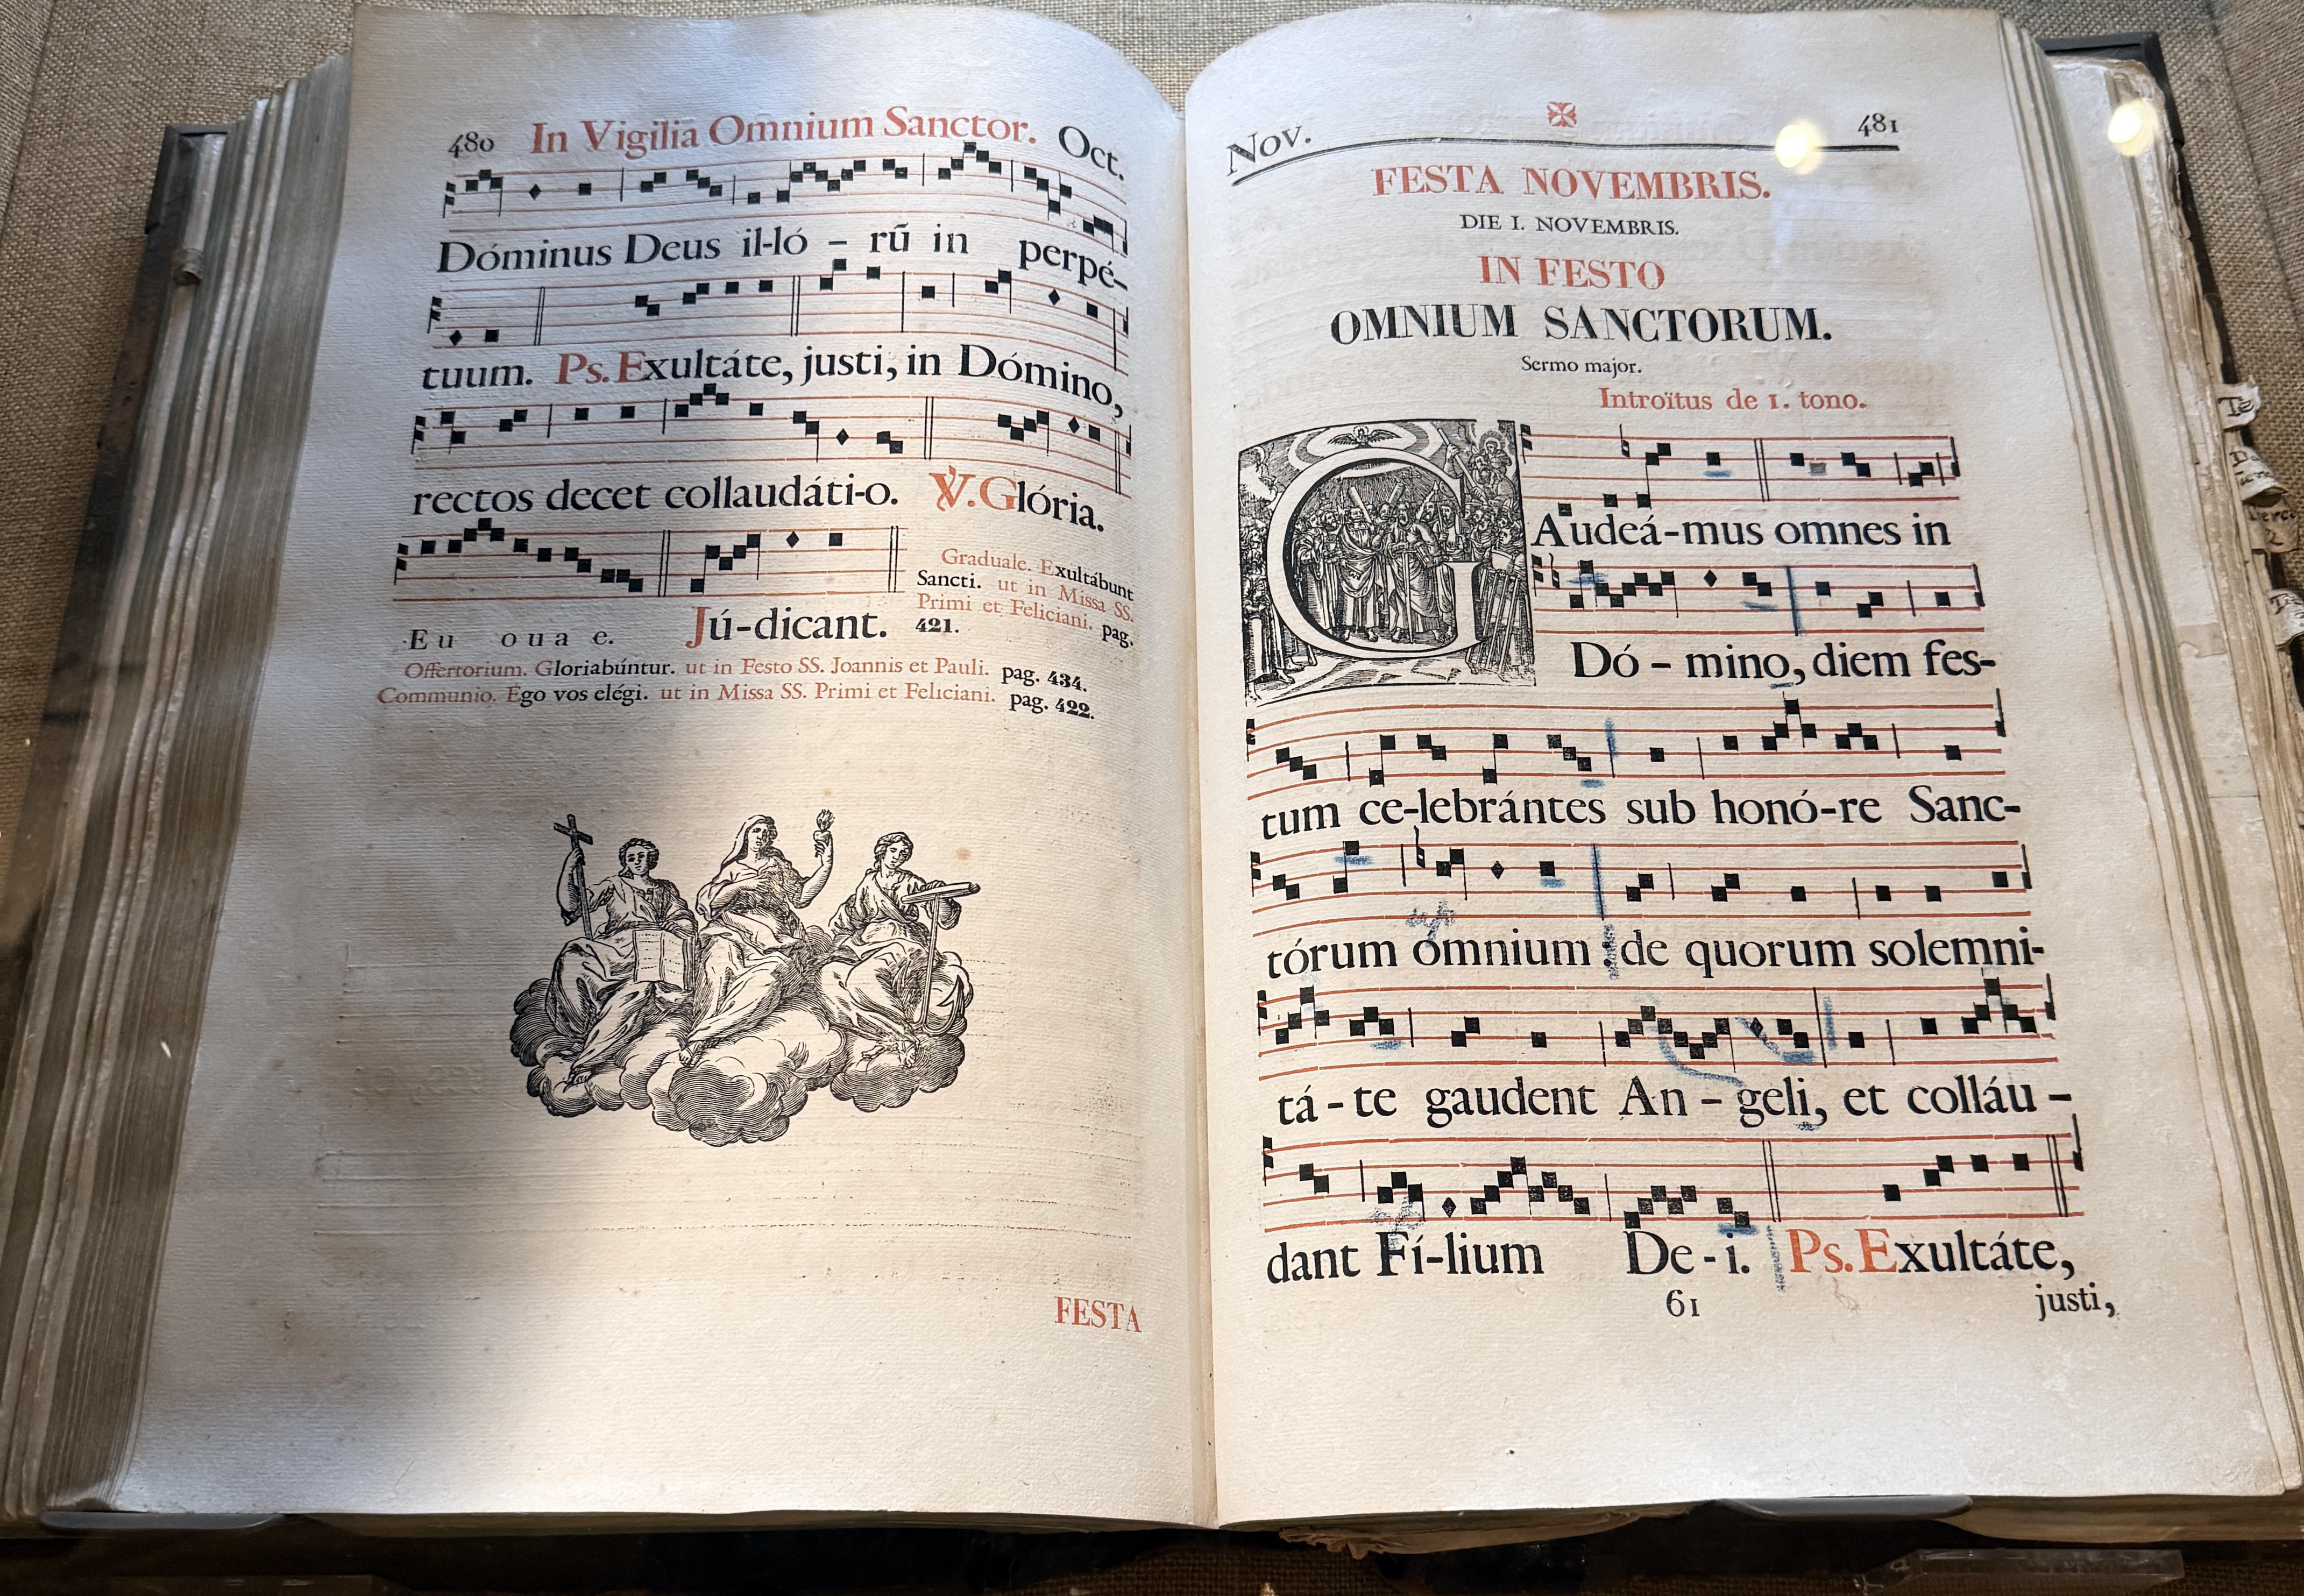 480 In Vigilia Omnium Sanctor. Oct.
Dóminus Deus il-ló - rū in perpé-
tuum. Ps. Exultáte, justi, in Dómino,
rectos decet collaudáti-o. ℣. Glória.
Eu ouae. Jú-dicant.
Graduale. Exultábunt
Sancti. ut in Missa SS.
Primi et Feliciani. pag.
421.
Offertorium. Gloriabúntur. ut in Festo SS. Joannis et Pauli. pag. 434.
Communio. Ego vos elégi. ut in Missa SS. Primi et Feliciani. pag. 422.
FESTA
Nov. 481
FESTA NOVEMBRIS.
DIE I. NOVEMBRIS.
IN FESTO
OMNIUM SANCTORUM.
Sermo major.
Introïtus de 1. tono.
GAudeá-mus omnes in
Dó - mino, diem fes-
tum ce-lebrántes sub honó-re Sanc-
tórum omnium : de quorum solemni-
tá - te gaudent An - geli, et colláu -
dant Fí-lium De - i. Ps. Exultáte,
61 justi,